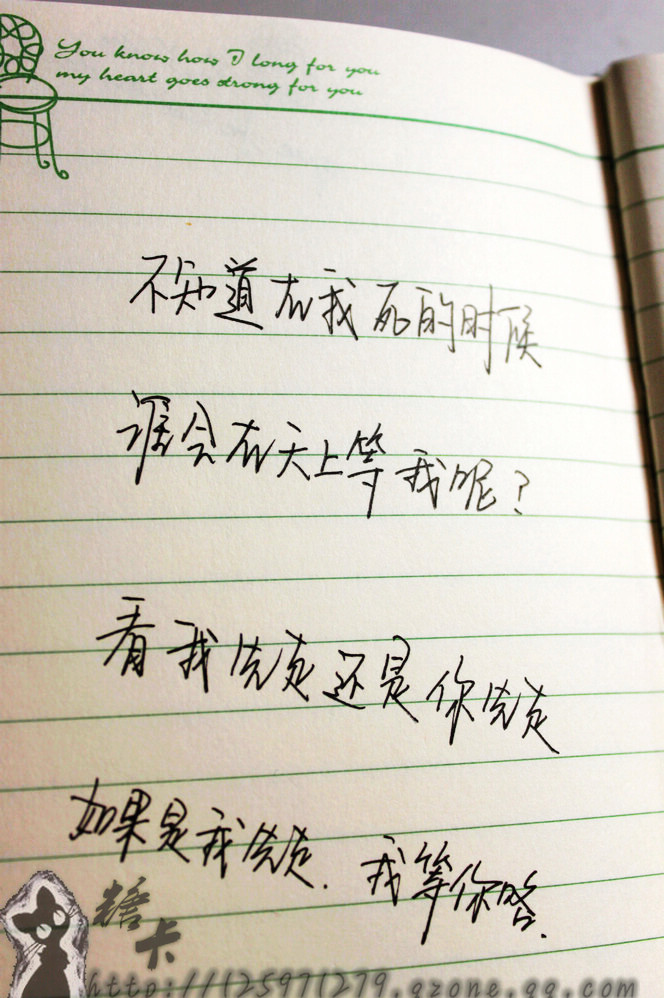 You know how I long for you
my heart goes strong for you
不知道在我死的时候
谁会在天上等我呢?
看我先走还是你先走
如果是我先走.我等你哈.
糖卡
http://1125971279.qzone.qq.com